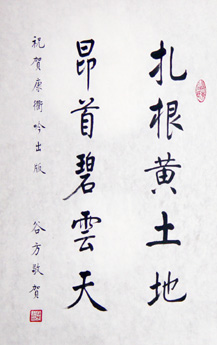 扎根黄土地
昂首碧雲天
祝賀康衢吟出版
谷方敬賀